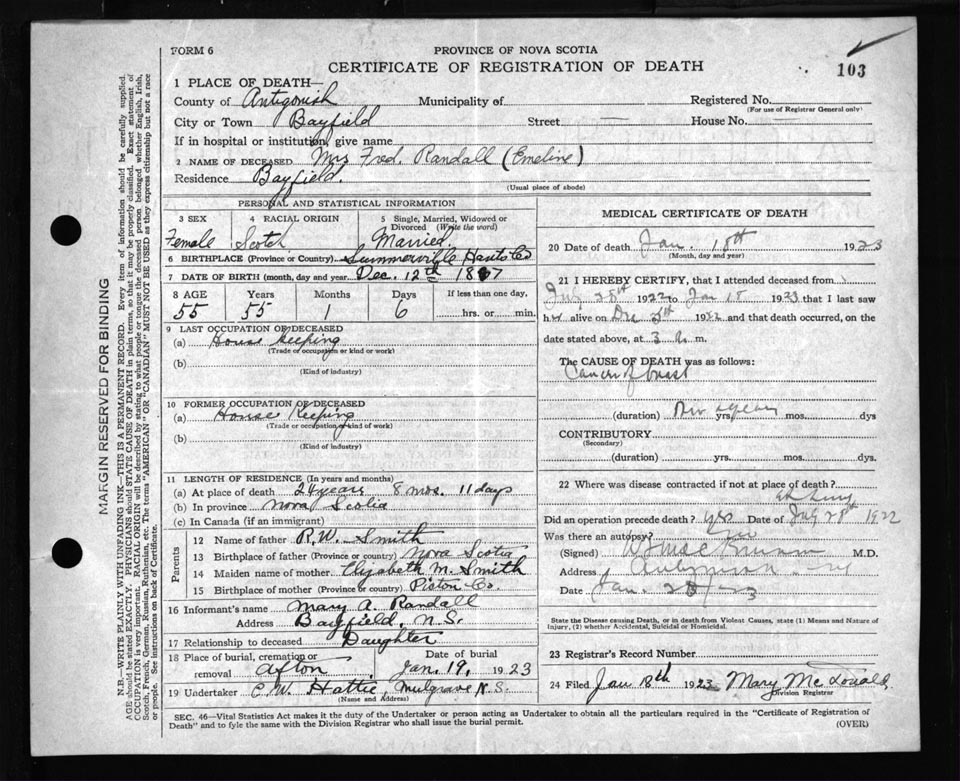 FORM 6
PROVINCE OF NOVA SCOTIA
CERTIFICATE OF REGISTRATION OF DEATH
103
1 PLACE OF DEATH—
County of Antigonish Municipality of Registered No.
(For use of Registrar General only)
City or Town Bayfield Street — House No. —
If in hospital or institution, give name
2 NAME OF DECEASED Mrs Fred. Randall (Emeline)
Residence Bayfield.
(Usual place of abode)
PERSONAL AND STATISTICAL INFORMATION
3 SEX 4 RACIAL ORIGIN 5 Single, Married, Widowed or Divorced (Write the word)
Female Scotch Married
6 BIRTHPLACE (Province or Country) Summerville Hants Co
7 DATE OF BIRTH (month, day and year) Dec. 12th 1867
8 AGE Years Months Days If less than one day,
55 55 1 6 hrs. or min.
9 LAST OCCUPATION OF DECEASED
(a) House Keeping
(Trade or occupation or kind or work)
(b)
(Kind of industry)
10 FORMER OCCUPATION OF DECEASED
(a) House Keeping
(Trade or occupation or kind of work)
(b)
(Kind of industry)
11 LENGTH OF RESIDENCE (In years and months)
(a) At place of death 24 years 8 mos. 11 days
(b) In province Nova Scotia
(c) In Canada (if an immigrant)
Parents
12 Name of father R. W. Smith
13 Birthplace of father (Province or country) Nova Scotia
14 Maiden name of mother Elyzabeth M. Smith
15 Birthplace of mother (Province or country) Co.
16 Informant's name Mary A. Randall
Address Bayfield, N.S.
17 Relationship to deceased Daughter
18 Place of burial, cremation or removal Afton Date of burial Jan. 19, 1923
19 Undertaker C. W. Hattie, Mulgrave N.S.
(Name and Address)
MEDICAL CERTIFICATE OF DEATH
20 Date of death Jan. 18th 1923
(Month, day and year)
21 I HEREBY CERTIFY, that I attended deceased from
July 28th 1922 to Jan 18 1923 that I last saw
her alive on Dec 1922 and that death occurred, on
date stated above, at 3 m.
The CAUSE OF DEATH was as follows:
Cancer of breast
(duration) yrs. mos. dys
CONTRIBUTORY
(Secondary)
(duration) yrs. mos. dys.
22 Where was disease contracted if not at place of death?
Did an operation precede death? yes Date of July 28th 1922
Was there an autopsy?
(Signed) M.D.
Address
Date Jan.
State the Disease causing Death, or in death from Violent Causes, state (1) Means and Nature of
Injury, (2) whether Accidental, Suicidal or Homicidal.
23 Registrar's Record Number
24 Filed Jan 18th 1923 Mary McDonald
Division Registrar
SEC. 46—Vital Statistics Act makes it the duty of the Undertaker or person acting as Undertaker to obtain all the particulars required in the "Certificate of Registration of
Death" and to fyle the same with the Division Registrar who shall issue the burial permit.
(OVER)
MARGIN RESERVED FOR BINDING
N.B.—WRITE PLAINLY WITH UNFADING INK—THIS IS A PERMANENT RECORD. Every item of information should be carefully supplied.
AGE should be stated EXACTLY. PHYSICIANS should STATE CAUSE OF DEATH in plain terms, so that it may be properly classified. Exact statement of
OCCUPATION is very important. RACIAL ORIGIN will be described by stating to what people or tongue the deceased person belonged whether English, Irish,
Scotch, French, German, Russian, Ruthenian, etc. The terms "AMERICAN" OR "CANADIAN" MUST NOT BE USED as they express citizenship but not a race
or people. See instructions on back of Certificate.